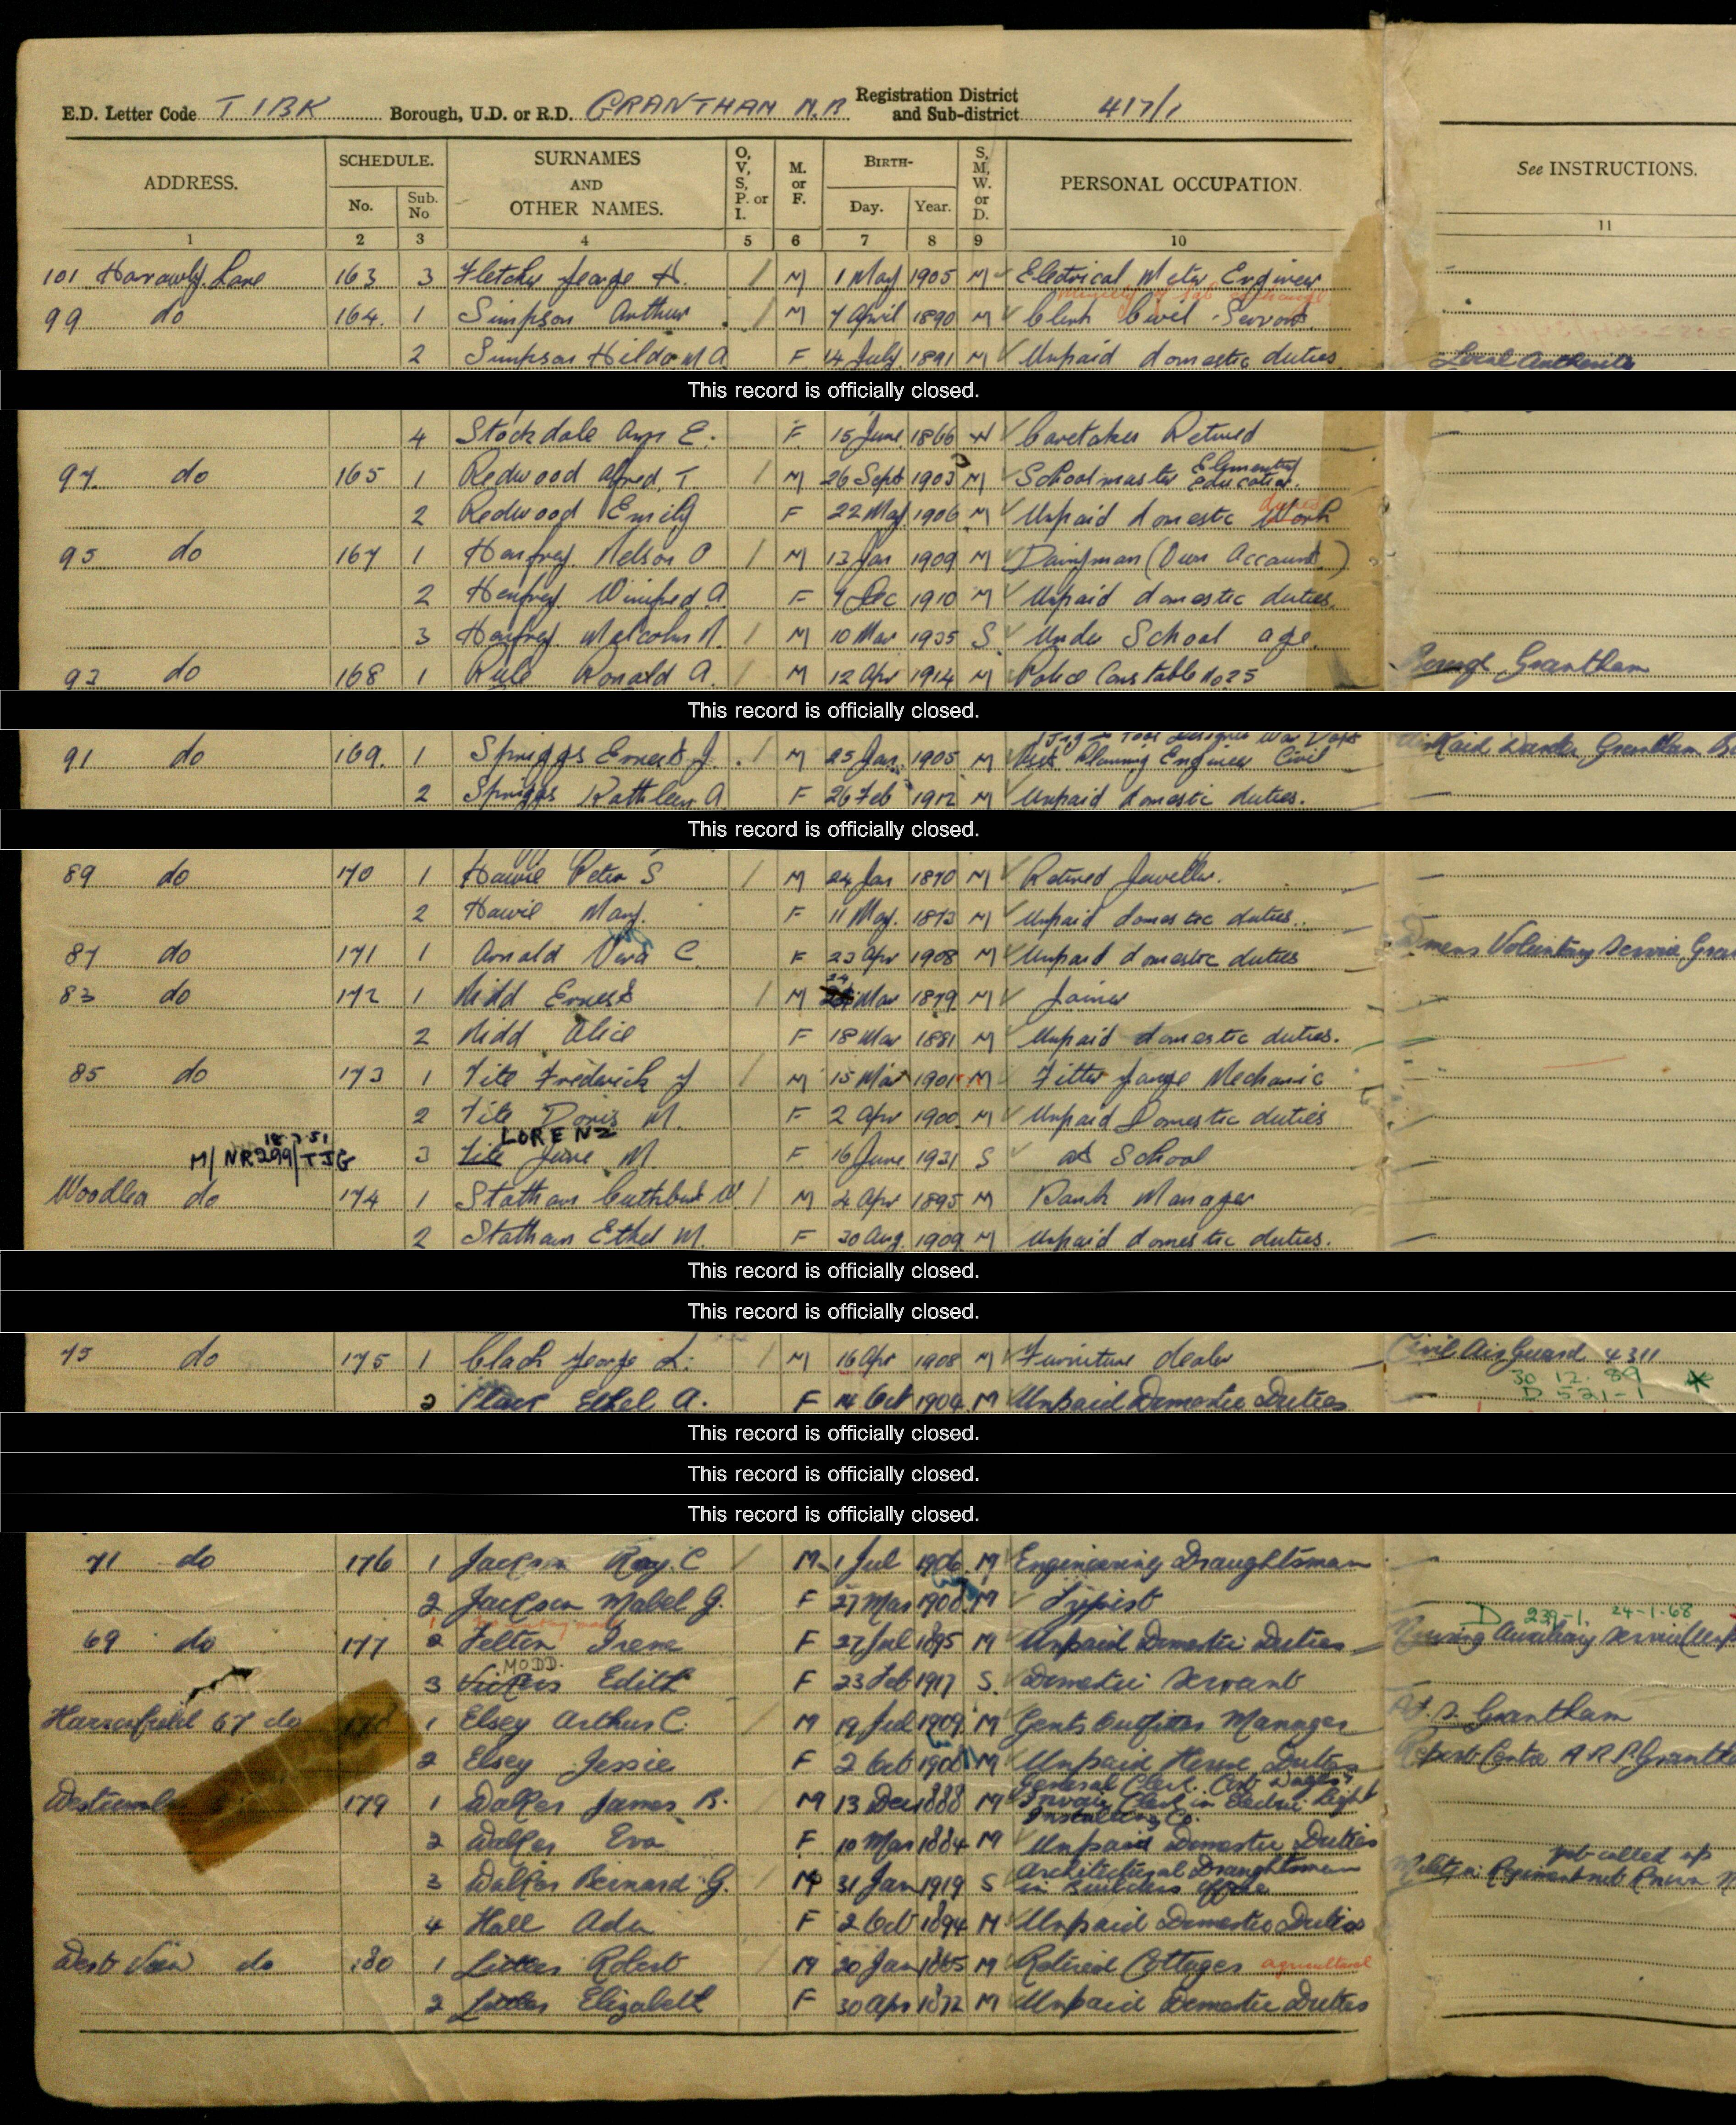 E.D. Letter Code TIBK Borough, U.D. or R.D. GRANTHAM M.B Registration District and Sub-district 417/1
ADDRESS. SCHEDULE. No. Sub. No SURNAMES AND OTHER NAMES. O, V, S, P. or I. M. or F. BIRTH- Day. Year. S, M, W. or D. PERSONAL OCCUPATION. See INSTRUCTIONS.
1 2 3 4 5 6 7 8 9 10 11
101 Harrowby Lane 163 3 Fletcher George H. M 1 May 1905 M Electrical Meter Engineer
99 do 164. 1 Simpson Arthur M 7 April 1890 M Clerk Civil Servant
2 Simpson Hilda M A F 14 July 1891 M Unpaid domestic duties Local Authority
This record is officially closed.
4 Stockdale Ann E. F 15 June 1866 W Caretaker Retired
97 do 165 1 Redwood Alfred. T. M 26 Sept 1903 M Schoolmaster Elementary Education.
2 Redwood Emily F 22 May 1906 M Unpaid domestic Work duties
95 do 167 1 Henfrey Nelson O M 13 Jan 1909 M Dairyman (Own Account)
2 Henfrey Winifred. A F 7 Dec 1910 M Unpaid domestic duties.
3 Henfrey Malcolm N. M 10 Mar 1935 S Under School age.
93 do 168 1 Rule Ronald A. M 12 Apr 1914 M Police Constable No 25 Grantham
This record is officially closed.
91 do 169. 1 Spriggs Ernest J. M 25 Jan. 1905 M Planning Engineer Civil Air Raid Warden Grantham
2 Spriggs Kathleen A F 26 Feb 1912 M Unpaid domestic duties.
This record is officially closed.
89 do 170 1 Hawie Peter S M 24 Jan 1870 M Retired Jeweller.
2 Hawie Mary. F 11 May. 1873 M Unpaid domestic duties.
87 do 171 1 Arnold Vera C. F 23 Apr 1908 M Unpaid domestic duties Womens Voluntary Service,
83 do 172 1 Kidd Ernest M 24 Mar 1879 M Joiner
2 Kidd Alice F 18 Mar 1881 M Unpaid domestic duties.
85 do 173 1 Tite Frederick J M 15 Mar 1901 M Fitter Gauge Mechanic
2 Tite Doris M. F 2 Apr 1900 M Unpaid Domestic duties
LORENZ
18.7.51
M/NR299/TJG 3 Tite June M. F 16 June 1931 S at School
Woodlea do 174 1 Statham Cuthbert W. M 4 Apr 1895 M Bank Manager
2 Statham Ethel M. F 30 Aug. 1909 M Unpaid domestic duties.
This record is officially closed.
This record is officially closed.
75 do 175 1 Clack George L. M 16 Apr 1908 M Furniture dealer Civil Air Guard 4311
30 12. 89
2 Clack Ethel A. F 14 Oct 1904 M Unpaid Domestic Duties D 521-1
This record is officially closed.
This record is officially closed.
This record is officially closed.
71 do 176 1 Jackson Roy. C M 1 Jul 1906 M Engineering Draughtsman
2 Jackson Mabel G. F 27 Mar 1908 M Typist
D 239-1. 24-1-68
69 do 177 2 Felton Irene F 27 Jul 1895 M Unpaid Domestic Duties Nursing Auxiliary Service
MODD.
3 Vickers Edith F 23 Feb 1917 S. Domestic Servant
67 do 1 Elsey Arthur C. M 19 Jul 1909 M Gents Outfitters Manager Grantham
2 Elsey Jessie F 2 Oct 1908 M Unpaid House Duties Report Centre A.R.P. Grantham
179 1 Walker James B. M 13 Dec 1888 M General Clerk. Cost Wages & Invoice Clerk in Electric Light Installing Co.
2 Walker Eva F 10 Mar 1884 M Unpaid Domestic Duties
not called up
3 Walker Bernard G. M 31 Jan 1919 S Architectural Draughtsman in Builders Office
4 Hall Ada F 2 Oct 1894 M Unpaid Domestic Duties
West View do 180 1 Robert M 20 Jan 1865 M Retired Cottager agricultural
2 Elizabeth F 30 Apr 1872 M Unpaid Domestic Duties